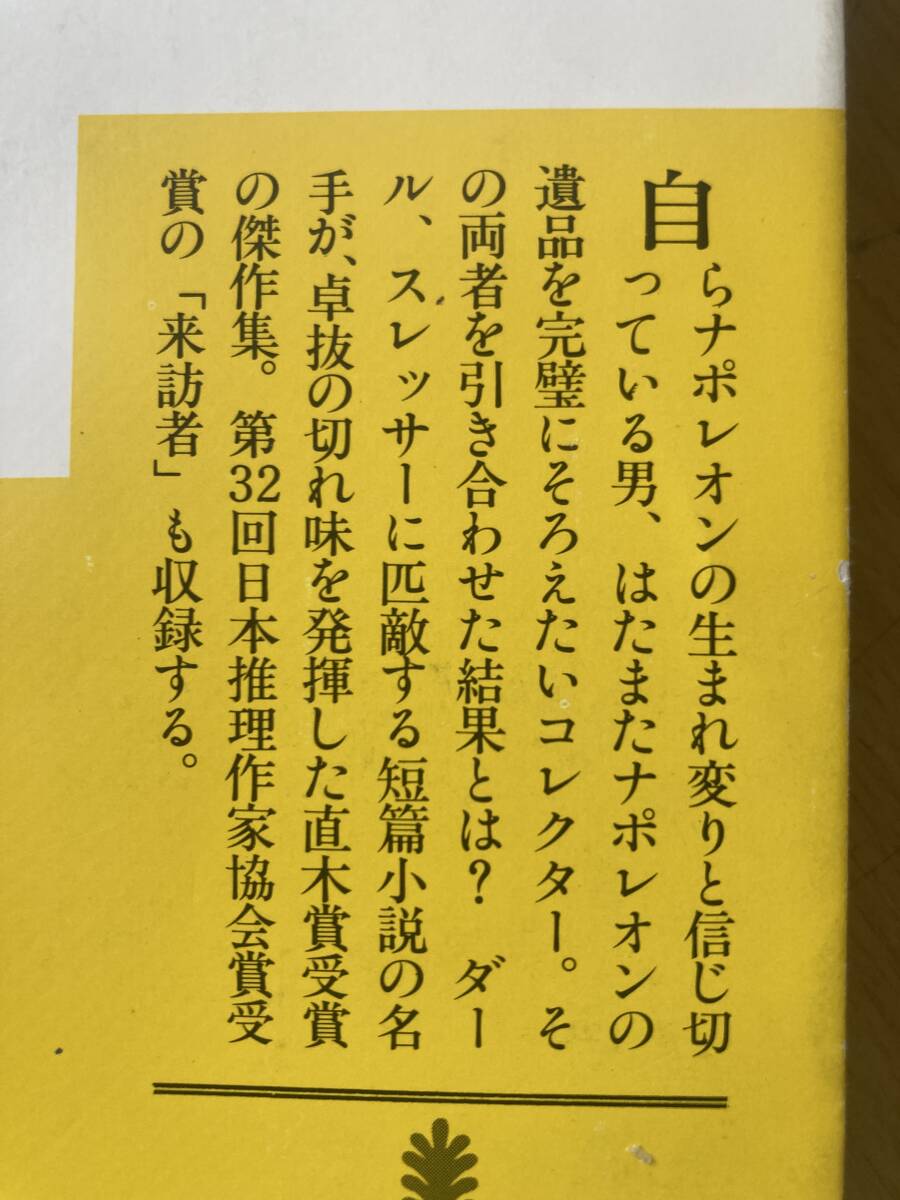 自らナポレオンの生まれ変りと信じ切
っている男、はたまたナポレオンの
遺品を完璧にそろえたいコレクター。そ
の両者を引き合わせた結果とは? ダー
ル、スレッサーに匹敵する短篇小説の名
手が、卓抜の切れ味を発揮した直木賞受賞
の傑作集。第32回日本推理作家協会賞受
賞の「来訪者」も収録する。